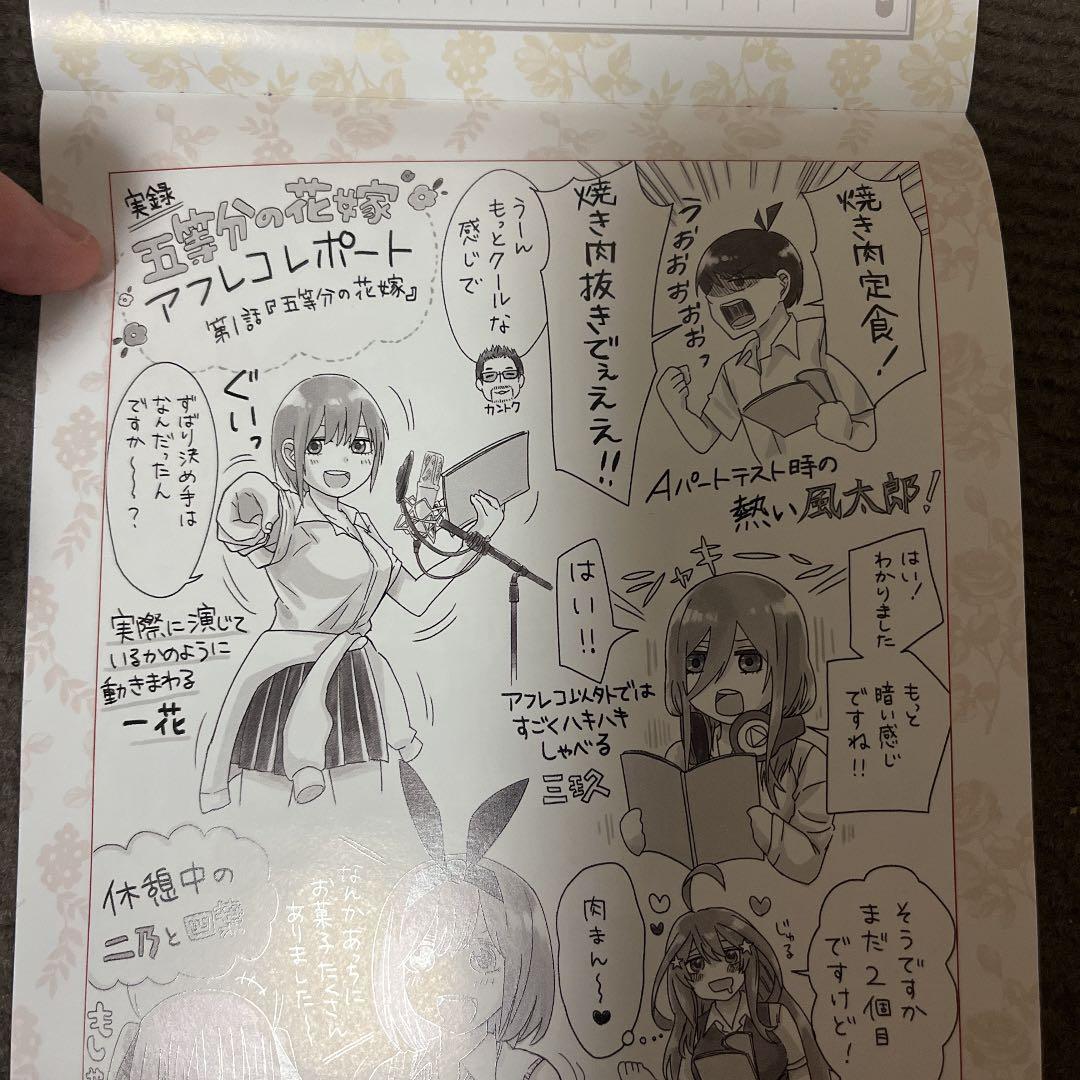 実録
五等分の花嫁
アフレコレポート
第1話『五等分の花嫁』
焼き肉定食！
うおおおおおっ
焼き肉抜きでぇぇぇ!!
うーん
もっとクールな
感じで
カントク
Aパートテスト時の
熱い風太郎！
ぐいっ
ずばり決め手は
なんだったん
ですか〜〜〜？
実際に演じて
いるかのように
動きまわる
一花
シャキ
はい！
わかりました
もっと
暗い感じ
ですね!!
はい!!
アフレコ以外では
すごくハキハキ
しゃべる
三玖
そうですか
まだ2個目
ですけど！
じゅる
肉まん〜♥
なんかあっちに
お菓子たくさん
ありました〜
休憩中の
二乃と四葉